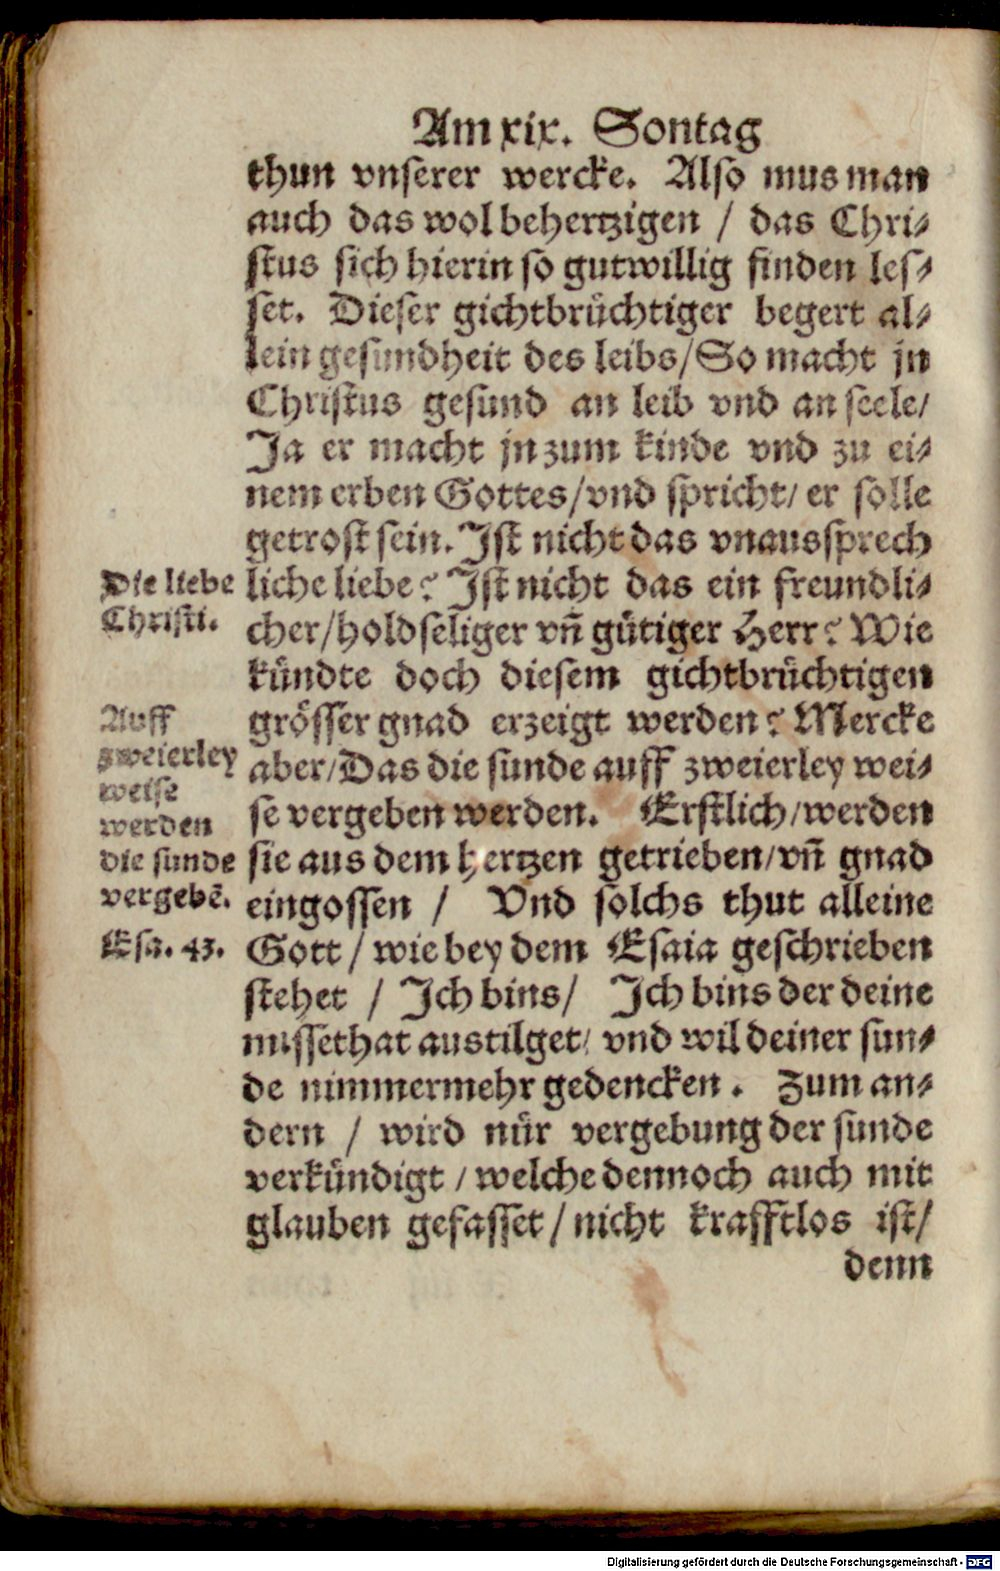 Am xix. Sontag
thun vnserer wercke. Also mus man
auch das wol behertzigen / das Chri⸗
stus sich hierin so gutwillig finden les⸗
set. Dieser gichtbrüchtiger begert al⸗
lein gesundheit des leibs/ So macht jn
Christus gesund an leib vnd an seele/
Ja er macht jn zum kinde vnd zu ei⸗
nem erben Gottes/ vnd spricht/ er solle
getrost sein. Ist nicht das vnaussprech
liche liebe? Ist nicht das ein freundli⸗
cher/ holdseliger vñ gütiger Herr? Wie
kündte doch diesem gichtbrüchtigen
grösser gnad erzeigt werden? Mercke
aber/ Das die sunde auff zweierley wei⸗
se vergeben werden. Erstlich/ werden
sie aus dem hertzen getrieben/ vñ gnad
eingossen / Vnd solchs thut alleine
Gott / wie bey dem Esaia geschrieben
stehet / Ich bins/ Ich bins der deine
missethat austilget/ vnd wil deiner sun⸗
de nimmermehr gedencken. Zum an⸗
dern / wird nür vergebung der sunde
verkündigt / welche dennoch auch mit
glauben gefasset / nicht krafftlos ist/
denn
Die liebe
Christi.
Auff
zweierley
weise
werden
die sunde
vergebē.
Esa. 43.
Digitalisierung gefördert durch die Deutsche Forschungsgemeinschaft - DFG